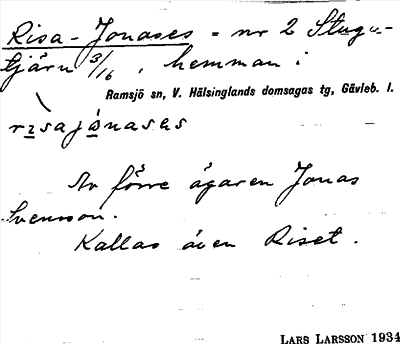 Risa-Jonases = nr 2 Stugu-
tjärn 3/16, hemman i
Ramsjö sn, V. Hälsinglands domsagas tg, Gävleb. l.
rìsajònasəs
Av förre ägaren Jonas
Svensson.
Kallas även Riset.
LARS LARSSON 1934